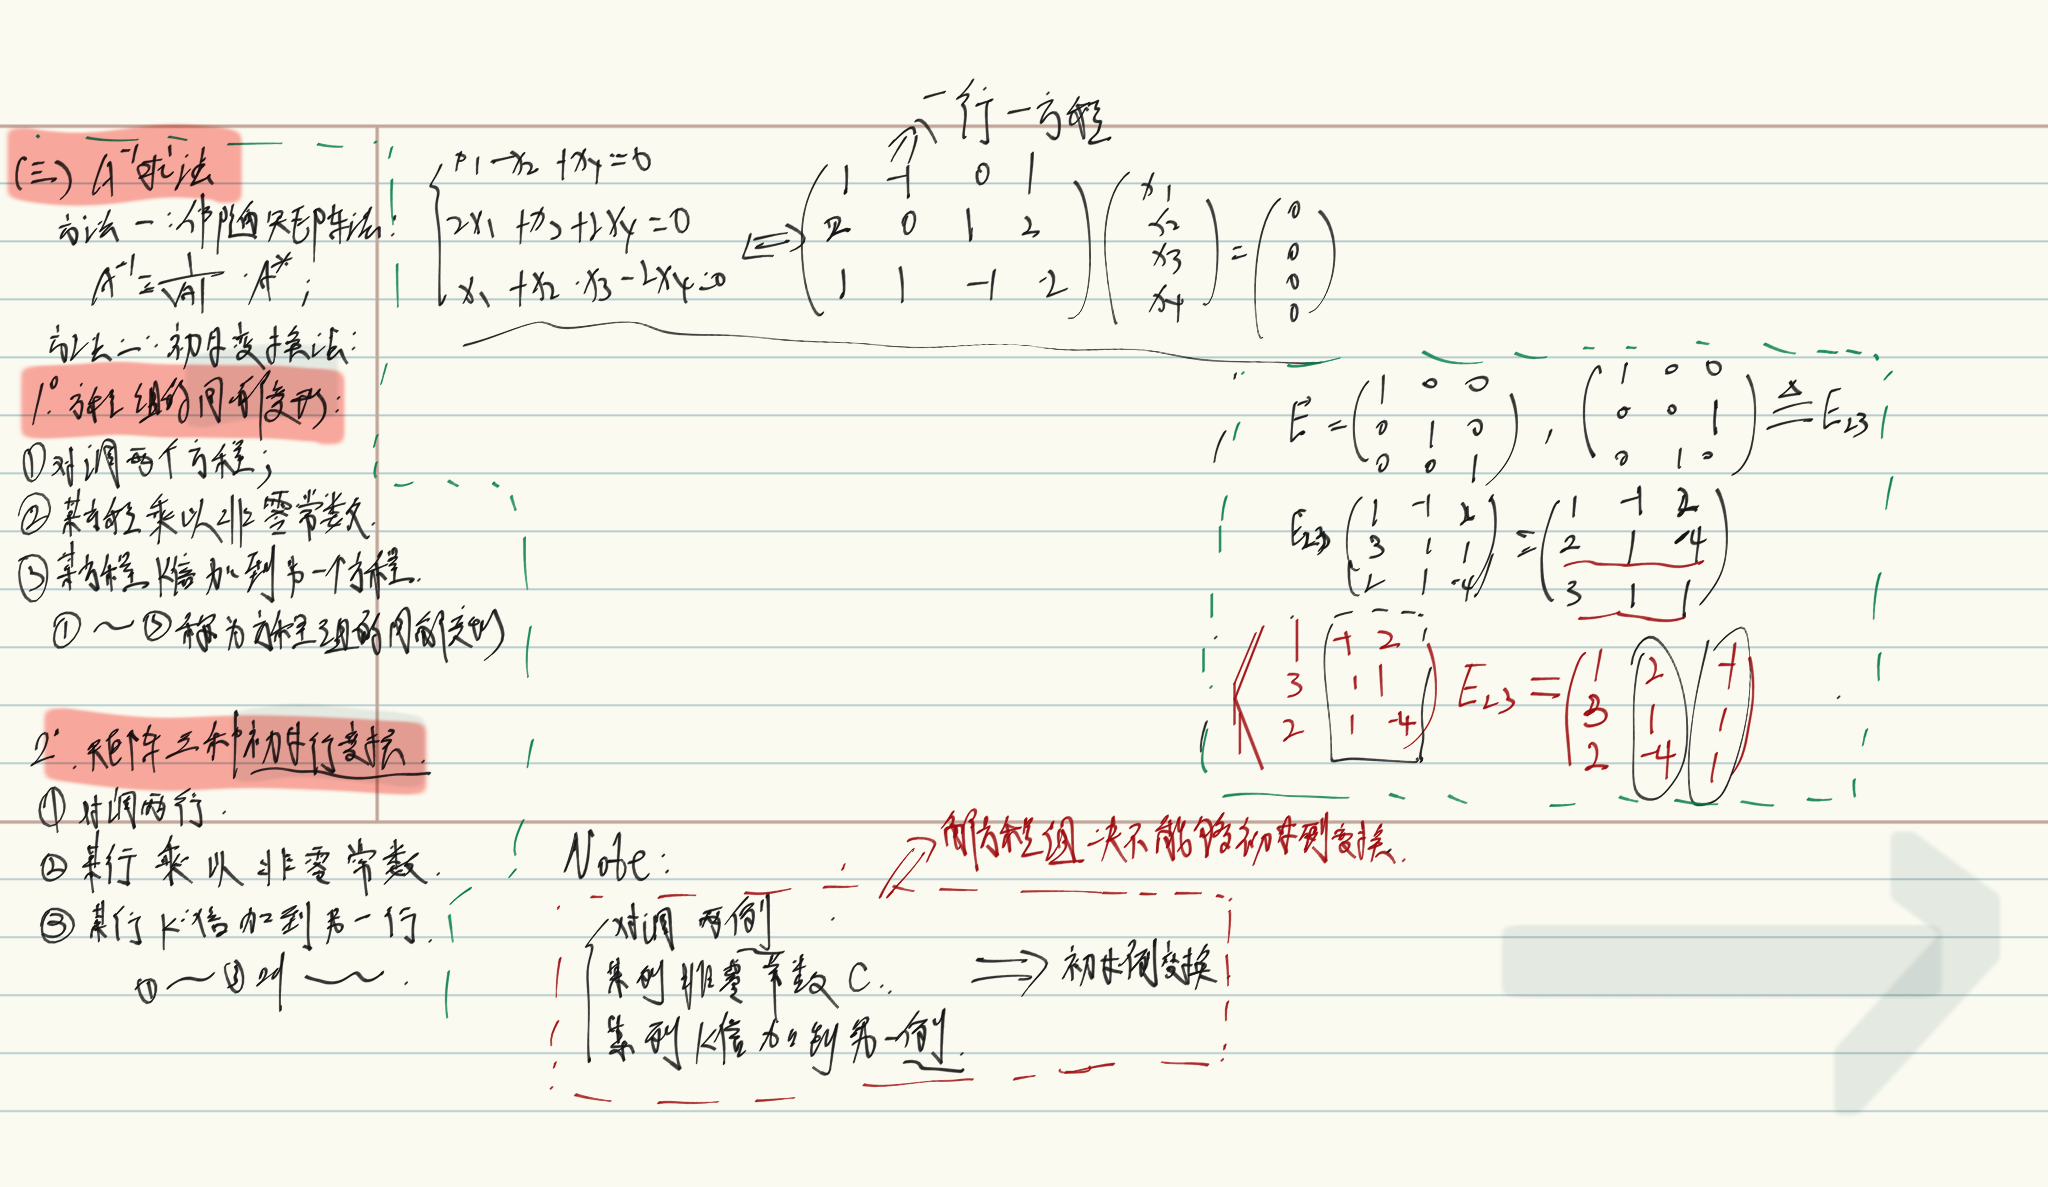 (三) A⁻¹求法
方法一:伴随矩阵法:
A⁻¹ = 1/|A| · A*;
方法二:初等变换法:
1°. 方程组的同解变形:
①对调两个方程;
②某方程乘以非零常数.
③某方程K倍加到另一个方程.
①～③称为方程组的同解变形
2°. 矩阵三种初等行变换.
①对调两行.
②某行乘以非零常数.
③某行K倍加到另一行.
①～③叫～.
一行一方程
x1 -x2 +x4=0
2x1 +x3+2x4=0
x1 +x2 -x3-2x4=0
⟺
1 -1 0 1
2 0 1 2
1 1 -1 -2
x1
x2
x3
x4
=
0
0
0
0
E =
1 0 0
0 1 0
0 0 1
,
1 0 0
0 0 1
0 1 0
≜ E23
E23
1 -1 2
3 1 1
2 1 -4
=
1 -1 2
2 1 -4
3 1 1
1 -1 2
3 1 1
2 1 -4
E23 =
1 2 -1
3 1 1
2 -4 1
Note:
解方程组决不能够初等列变换.
对调两列
某列非零常数C.
某列K倍加到另一列.
⟹ 初等列变换